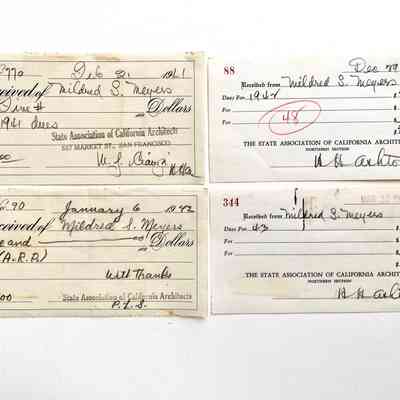 770 Feb 21 1941
ceived of Mildred S. Meyers
Five # Dollars
1941 dues
State Association of California Architects
557 MARKET ST., SAN FRANCISCO
00
88 Dec 29
Received from Mildred S. Meyers
DUES FOR 1942 $
FOR 48 $
FOR $
FOR $
THE STATE ASSOCIATION OF CALIFORNIA ARCHIT
NORTHERN SECTION
H H Ashto
90 January 6 1942
ceived of Mildred S. Meyers
e and Dollars
(A.R.P.)
With Thanks
00 State Association of California Architects
P.L.S.
344
Received from Mildred S. Meyers
DUES FOR 43 $
FOR $
FOR $
FOR $
THE STATE ASSOCIATION OF CALIFORNIA ARCHIT
NORTHERN SECTION
H H Asht